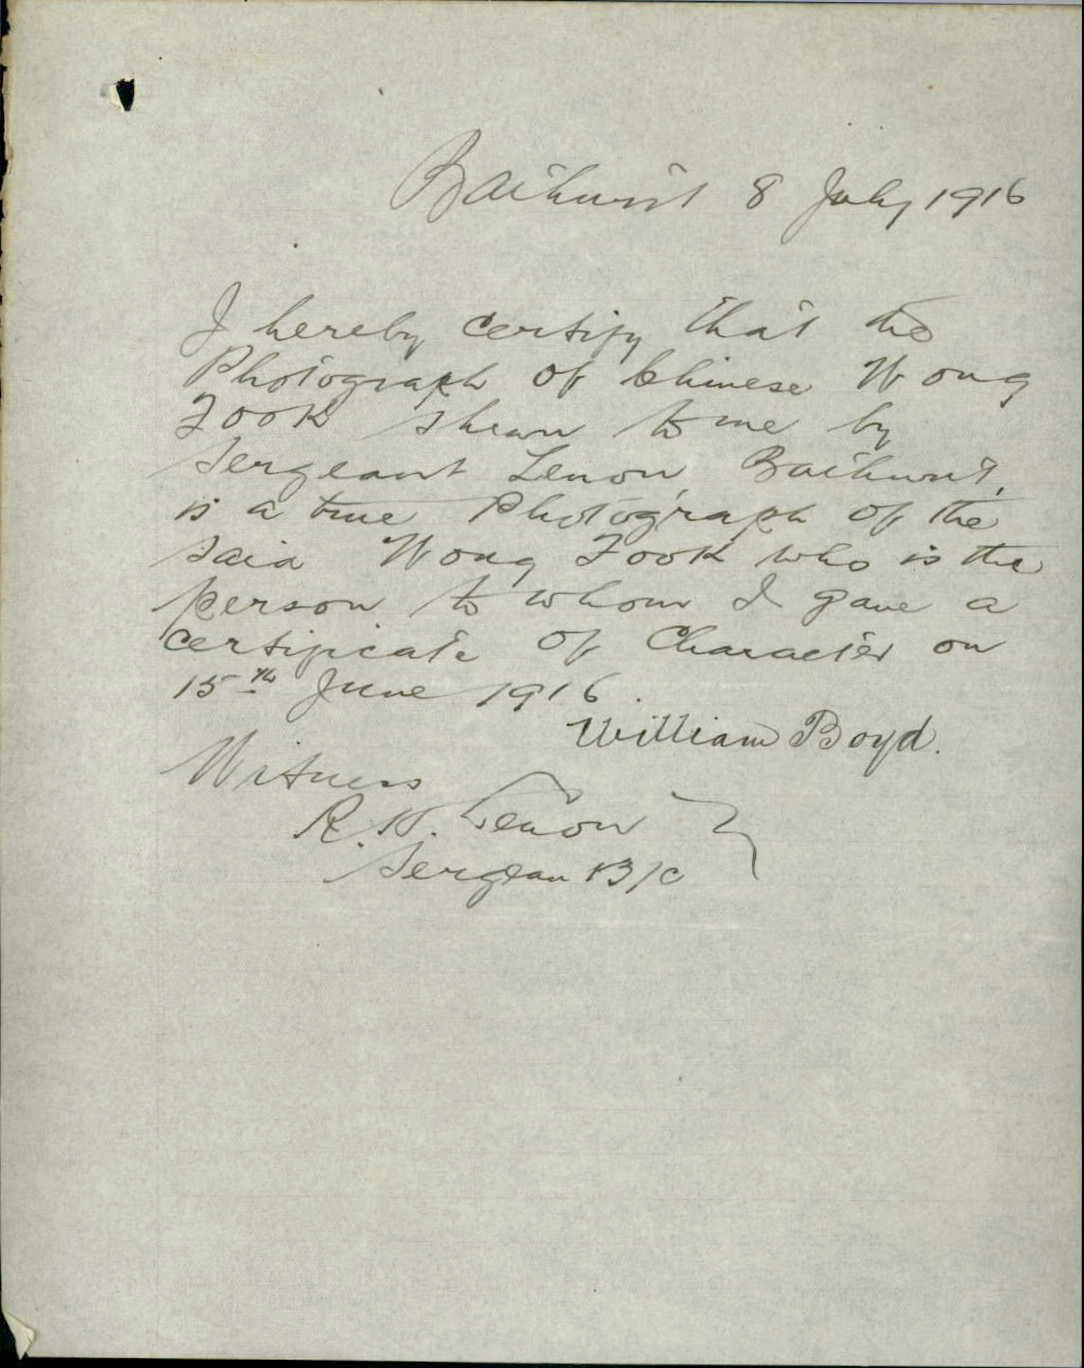 Bathurst 8 July 1916
I hereby certify that the
Photograph of Chinese Wong
Fook shewn to me by
Sergeant Lenon Bathurst,
is a true Photograph of the
said Wong Fook who is the
person to whom I gave a
certificate of Character on
15th June 1916.
William Boyd.
Witness
R. H. Lenon
Sergean B/C